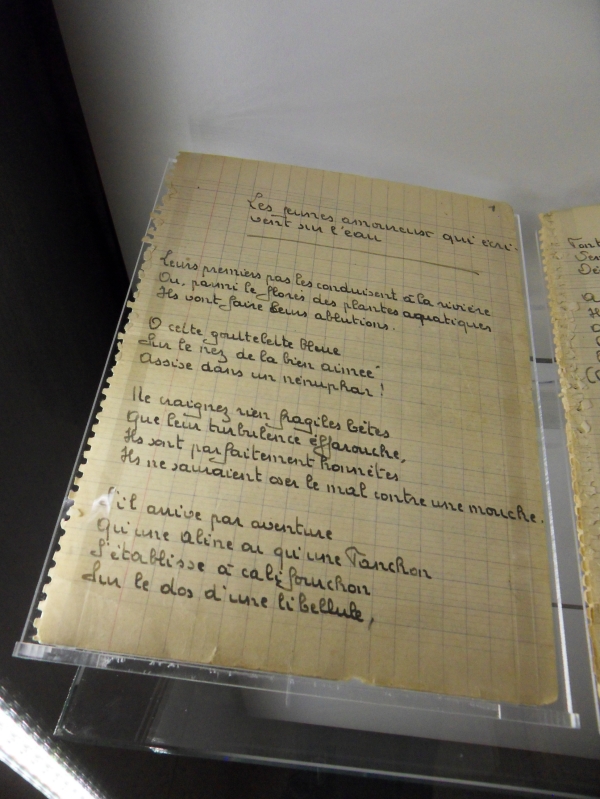 1
Les jeunes amoureux qui écri-
vent sur l'eau
Leurs premiers pas les conduisent à la rivière
Ou, parmi le flores des plantes aquatiques
Ils vont faire leurs ablutions.
O cette gouttelette bleue
Sur le nez de la bien aimée
Assise dans un nénuphar !
Ne craignez rien fragiles bêtes
Que leur turbulence effarouche,
Ils sont parfaitement honnêtes
Ils ne sauraient oser le mal contre une mouche.
S'il arrive par aventure
Qu'une Aline ou qu'une Fanchon
S'établisse à califourchon
Sur le dos d'une libellule,